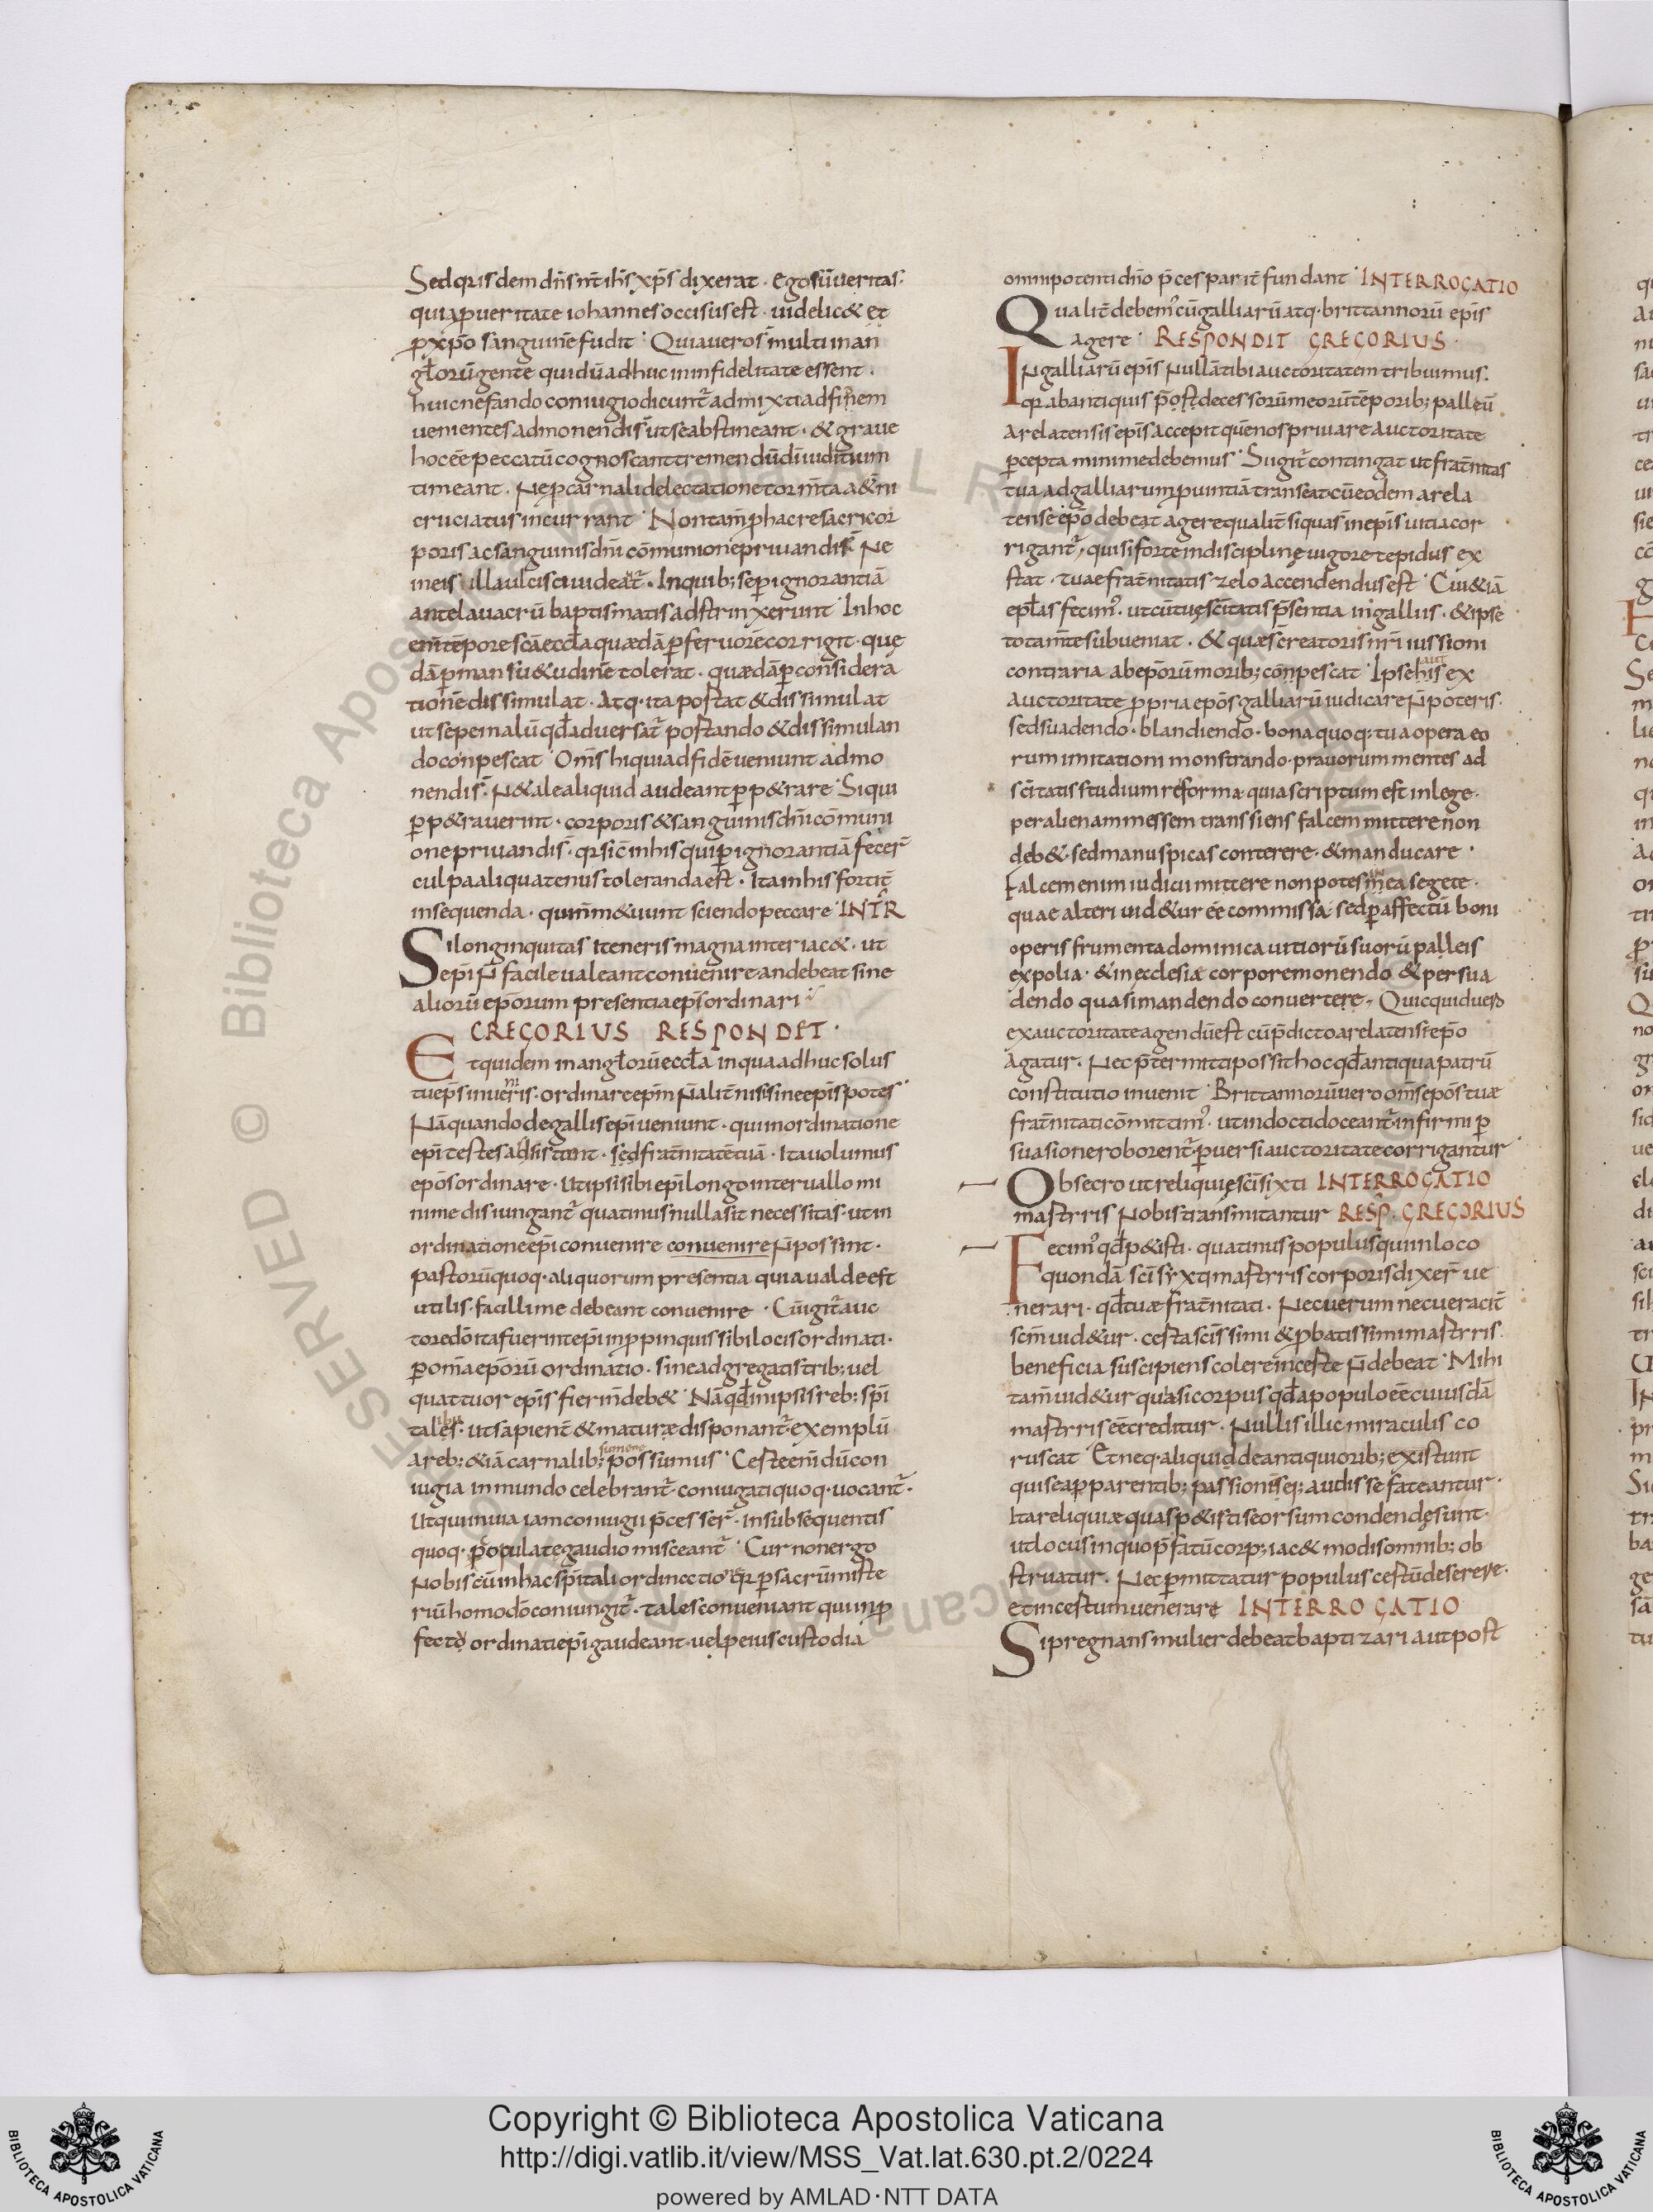 Sed quis dem dn̄s nt̄ ih̄s xp̄s dixerat · Ego sū ueritas ·
quia ꝓ ueritate iohannes occisus est · uidelic& et
ꝓ xp̄o sanguinē fudit · Quia uero s̄ multi in an
gl̄orū gente qui dū adhuc in infidelitate essent ·
huic nefando coniugio dicunt᷑ admixti ad finem
uenientes admonendi s̄ ut se abstineant · & graue
hoc eē peccatū cognoscant tremendū dī iudicium
timeant · Ne ꝑ carnali delectatione torm̄ta aet̄ni
cruciatus incurrant · Non tam̄ ꝑ hac re sacri cor
poris ac sanguinis dn̄i cōmunione priuandi s̄ Ne
in eis illa ulcisci uideat᷑ · In quib; se ꝑ ignorantiā
ante lauacrū baptismatis adstrinxerunt · In hoc
enī tēpore scā eccl̄a quædā ꝑ feruorē corrigit · quę
dā ꝑ mansu&udinē tolerat · quædā ꝑ considera
tionē dissimulat · Atq· ita postat & dissimulat
ut sepe malū qd̄ aduersat᷑ postando & dissimulan
do conpescat · Om̄s hi qui ad fidē ueniunt admo
nendi s̄ · N& ale aliquid audeant ꝑp&rare · Si qui
ꝑp&rauerint · corporis & sanguinis dn̄i cōmuni
one priuandi s̄ · qr̄ sic in his qui ꝑ ignorantiā fecer̄
culpa aliquatenus toleranda est · Ita in his fortit̄
insequenda · qui n̄ m&uunt sciendo peccare · INTR̄
Si longinquitas iteneris magna interiac& · ut
epī n̄ facile ualeant conuenire an debeat sine
aliorū epōrum presentia ep̄s ordinari ·
GREGORIUS RESPONDIT ·
Et quidem in angl̄orū eccl̄a in qua adhuc solus
tu ep̄s inueneris · ordinare epm̄ n̄ alit̄ nisi sine ep̄is potes ·
Nā quando de gallis epī ueniunt · qui in ordinatione
epī testes adsistant · sed fratn̄itatē tuā · Ita uolumus
epōs ordinare · Ut ipsi sibi epī longo interuallo mi
nime disiungant᷑ quatinus nulla sit necessitas · ut in
ordinatione epī conuenire conuenire n̄ possint ·
pastorū quoq· aliquorum presentia quia ualde est
utilis · facillime debeant conuenire · Cū igit᷑ auc
tore dō ita fuerint epī in ꝓpinquis sibi locis ordinati ·
ꝑ om̄a epōrū ordinatio · sine adgregatis trib; uel
quattuor ep̄is fieri n̄ deb& · Nā qd̄ in ipsis reb; sp̄i
talibus · ut sapient̄ & maturæ disponant᷑ · exemplū
a reb; &iā carnalib; sumere possumus · Certe enī dū con
iugia in mundo celebrant᷑ · coniugati quoq· uocant᷑ ·
Ut qui in uia iam coniugii p̄cesser̄ · in subsequentis
quoq· copulate gaudio misceant᷑ · Cur non ergo
Nobis cū in hac sp̄itali ordinectione qr̄ ꝑ sacrū miste
riū homo dō coniungit᷑ · tales conueniant qui in ꝓ
fecto ordinati epī gaudeant · uel p eius custodiā
omnipotenti dn̄o p̄ces parit̄ fundant · INTERROGATIO
Qualit̄ debem᷒ cū galliarū atq· brittannorū ep̄is
agere · RESPONDIT GREGORIUS ·
In galliarū ep̄is nullā tibi auctoritatem tribuimus ·
qr̄ ab antiquis p̄decessorū meorū tēporib; palleū
arelatensis ep̄is accepit quē nos priuare auctoritate
ꝑcepta minime debemus · Si igit᷑ contingat ut fratn̄itas
tua ad galliarum ꝓuintiā transeat cū eodem arela
tense epō debeat agere qualit̄ si qua s̄ in ep̄is uitia cor
rigant᷑ · qui si forte in disciplinę uigore tepidus ex
stat · tuae fratn̄itatis zelo accendendus est · Cui &iā
epl̄as fecim᷒ · ut cū tuę sc̄itatis p̄sentia in gallus · & ipse
tota mt̄e subueniat · & quæ s̄ creatoris nr̄i iussioni
contraria ab epōrū morib; conpescat · Ipse his aut̄ ex
auctoritate ꝓpria epōs galliarū iudicare n̄ poteris ·
sed suadendo · blandiendo · bona quoq; tua opera eo
rum imitationi monstrando · prauorum mentes ad
sc̄itatis studium reforma quia scriptum est in lege ·
per alienam messem transsiens falcem mittere non
deb& · sed manu spicas conterere · & manducare ·
Falcem enim iudicii mittere non potes in ea segete ·
quae alteri uid&ur eē commissa · sed ꝑ affectū boni
operis frumenta dominica uitiorū suorū palleis
expolia · & in ecclesiæ corpore monendo & persua
dendo quasi mandendo conuertere · Quicquid uero
ex auctoritate agendū est cū p̄dicto arelatensi epō
agatur · Nec p̄termitti possit hoc qd̄ antiqua patrū
constitutio inuenit · Brittannorū uero om̄s epōs tuæ
fratn̄itati cōmittim᷒ · ut indocti doceant᷑ infirmi ꝑ
suasione roborent᷑ · ꝑuersi auctoritate corrigantur ·
Obsecro ut reliquię sc̄i sixti INTERROGATIO
martyris nobis transmitantur RESP̄ · GREGORIUS
Fecim᷒ qd̄ p&isti · quatinus populus qui in loco
quondā sc̄i syxti martyris corporis dixer̄ ue
nerari · qd̄ tuæ fratn̄itati · Nec uerum nec ueracit̄
scm̄ uid&ur · certa sc̄issimi & ꝓbatissimi martyris ·
beneficia suscipiens colere incerte n̄ debeat · Mihi
tam̄ uid&ur quasi corpus qd̄ a populo eē cuiusdā
martyris eē creditur · Nullis illic miraculis co
ruscat · Et neq· aliquid de antiquiorib; existunt
qui se a ꝓparentib; passionis ei; audisse fateantur ·
Ita reliquiæ quas p&isti seorsum condendę sunt ·
ut locus in quo p̄fatū corp; iac& modis omnib; ob
struatur · Nec ꝑmittatur populus certū deserere ·
et incertum uenerare INTERROGATIO
Si pregnans mulier debeat baptizari aut post
Copyright © Biblioteca Apostolica Vaticana
http://digi.vatlib.it/view/MSS_Vat.lat.630.pt.2/0224
powered by AMLAD·NTT DATA
BIBLIOTECA APOSTOLICA VATICANA
BIBLIOTECA APOSTOLICA VATICANA